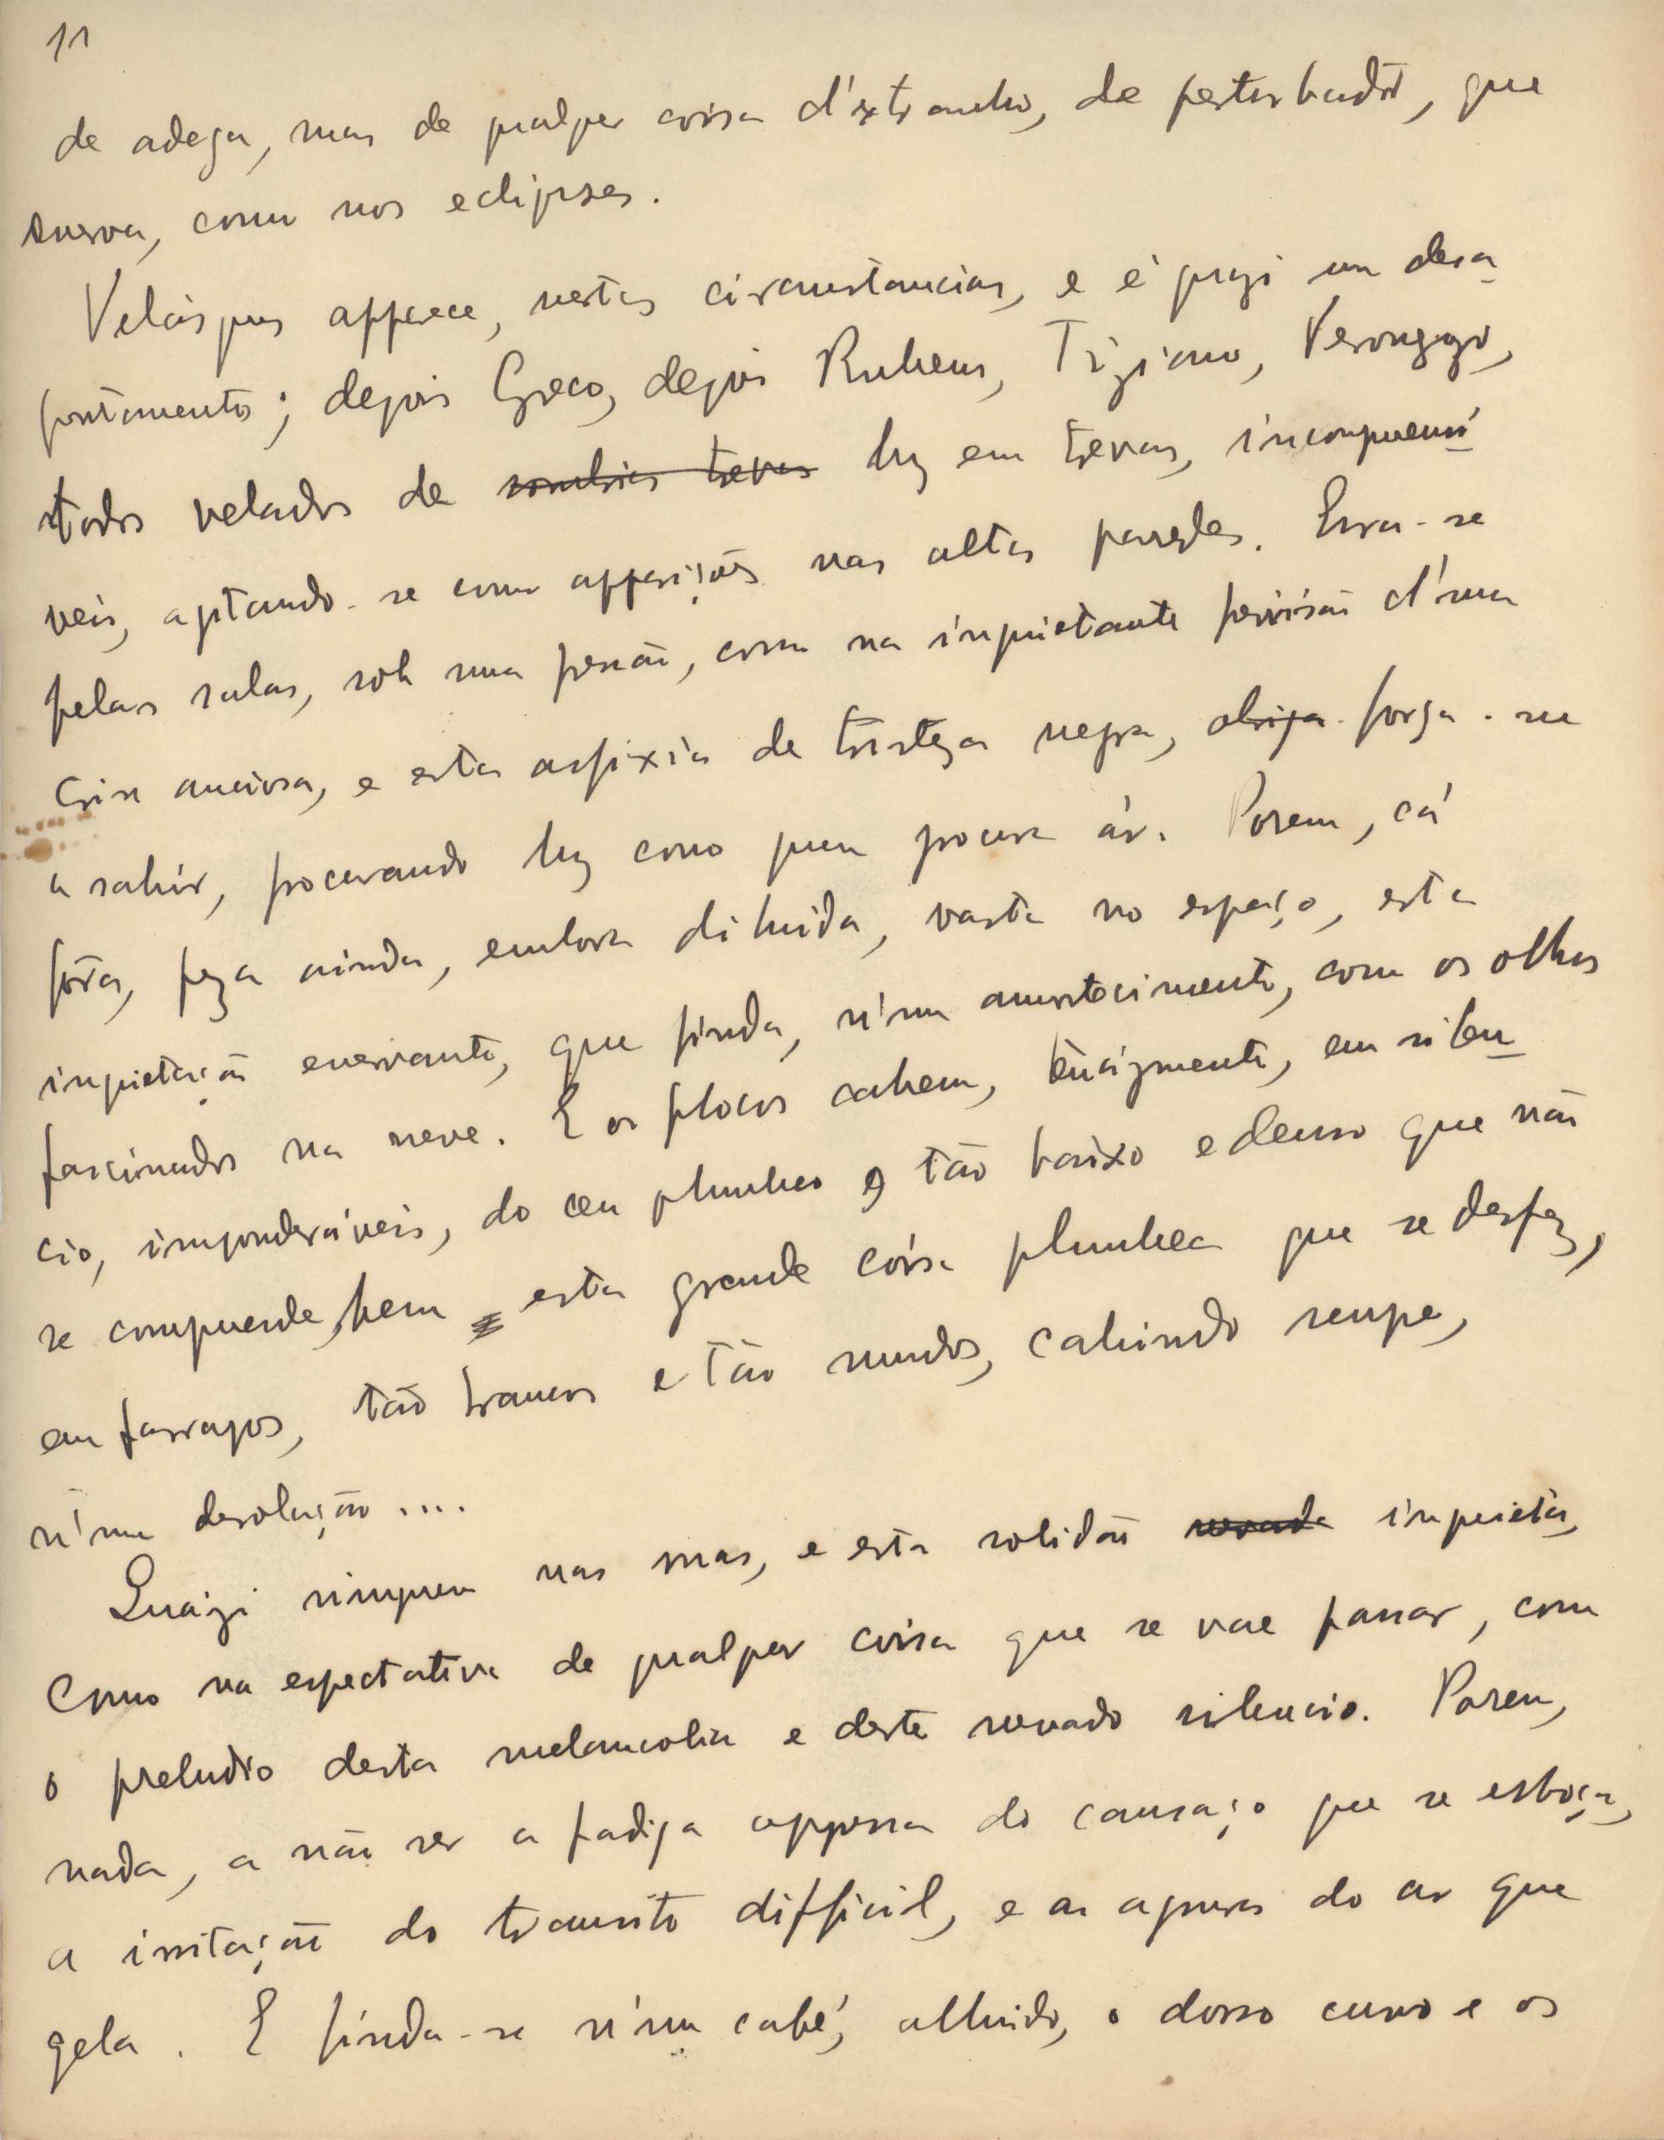 11
de adega, mas de qualquer coisa d'extranho, de perturbadôr, que
enerva, como nos eclipses.
Velásques apparece, nestas circumstancias, e é quazi um desa-
pontamento; depois Greco, depois Rubens, Tiziano, Veronezzo,
todos velados de sombrias trevas luz em trevas, incomprensi-
veis, agitando-se como apparições nas altas paredes. Erra-se
pelas salas, sob uma pressão, como na inquietante previsão d'uma
crise anciosa, e esta asfixia de tristeza negra, obriga força-me
a sahir, procurando luz como quem procura ár. Porem, cá
fóra, peza ainda, embora diluida, vasta no espaço, esta
inquietação enervante, que finda, n'um amortecimento, com os olhos
fascinados na neve. E os flocos cahem, tenázmente, em silen-
cio, imponderáveis, do ceu plumbeo, tão baixo e denso que não
se comprende bem esta grande cóisa plumbea que se desfez,
em farrapos, tão brancos e tão mudos, cahindo sempre,
n'uma desolação....
Quázi ninguem nas ruas, e esta solidão nevada inquieta,
como na espectativa de qualquer coisa que se vae passar, com
o preludio desta melancolia e deste nevado silencio. Porem,
nada, a não ser a fadiga oppressa do cansaço que se esboça,
a irritação do transito difficil, e as agruras do ar que
gela. E finda-se n'um café, alluido, o dorso curvo e os